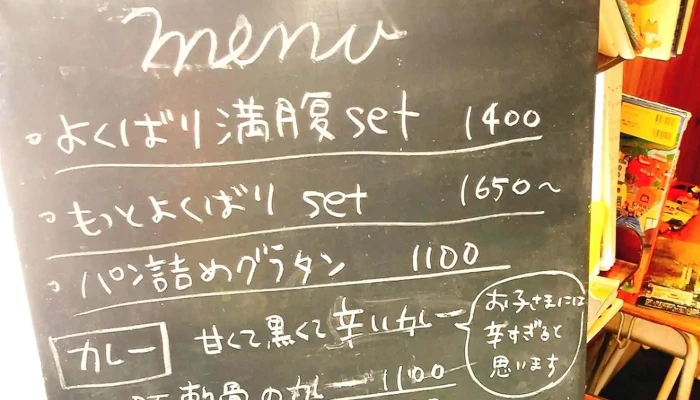 menu
よくばり満腹set 1400
もっとよくばり set 1650～
パン詰めグラタン 1100
カレー 甘くて黒くて辛いカレー
お子さまには
辛すぎると
思います
軟骨のカレー 1100